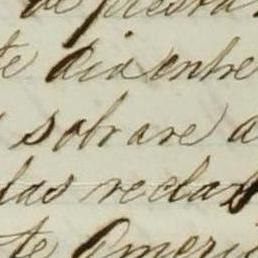 de presta
te dia entre
sobrare a
las reclam
te Ameri